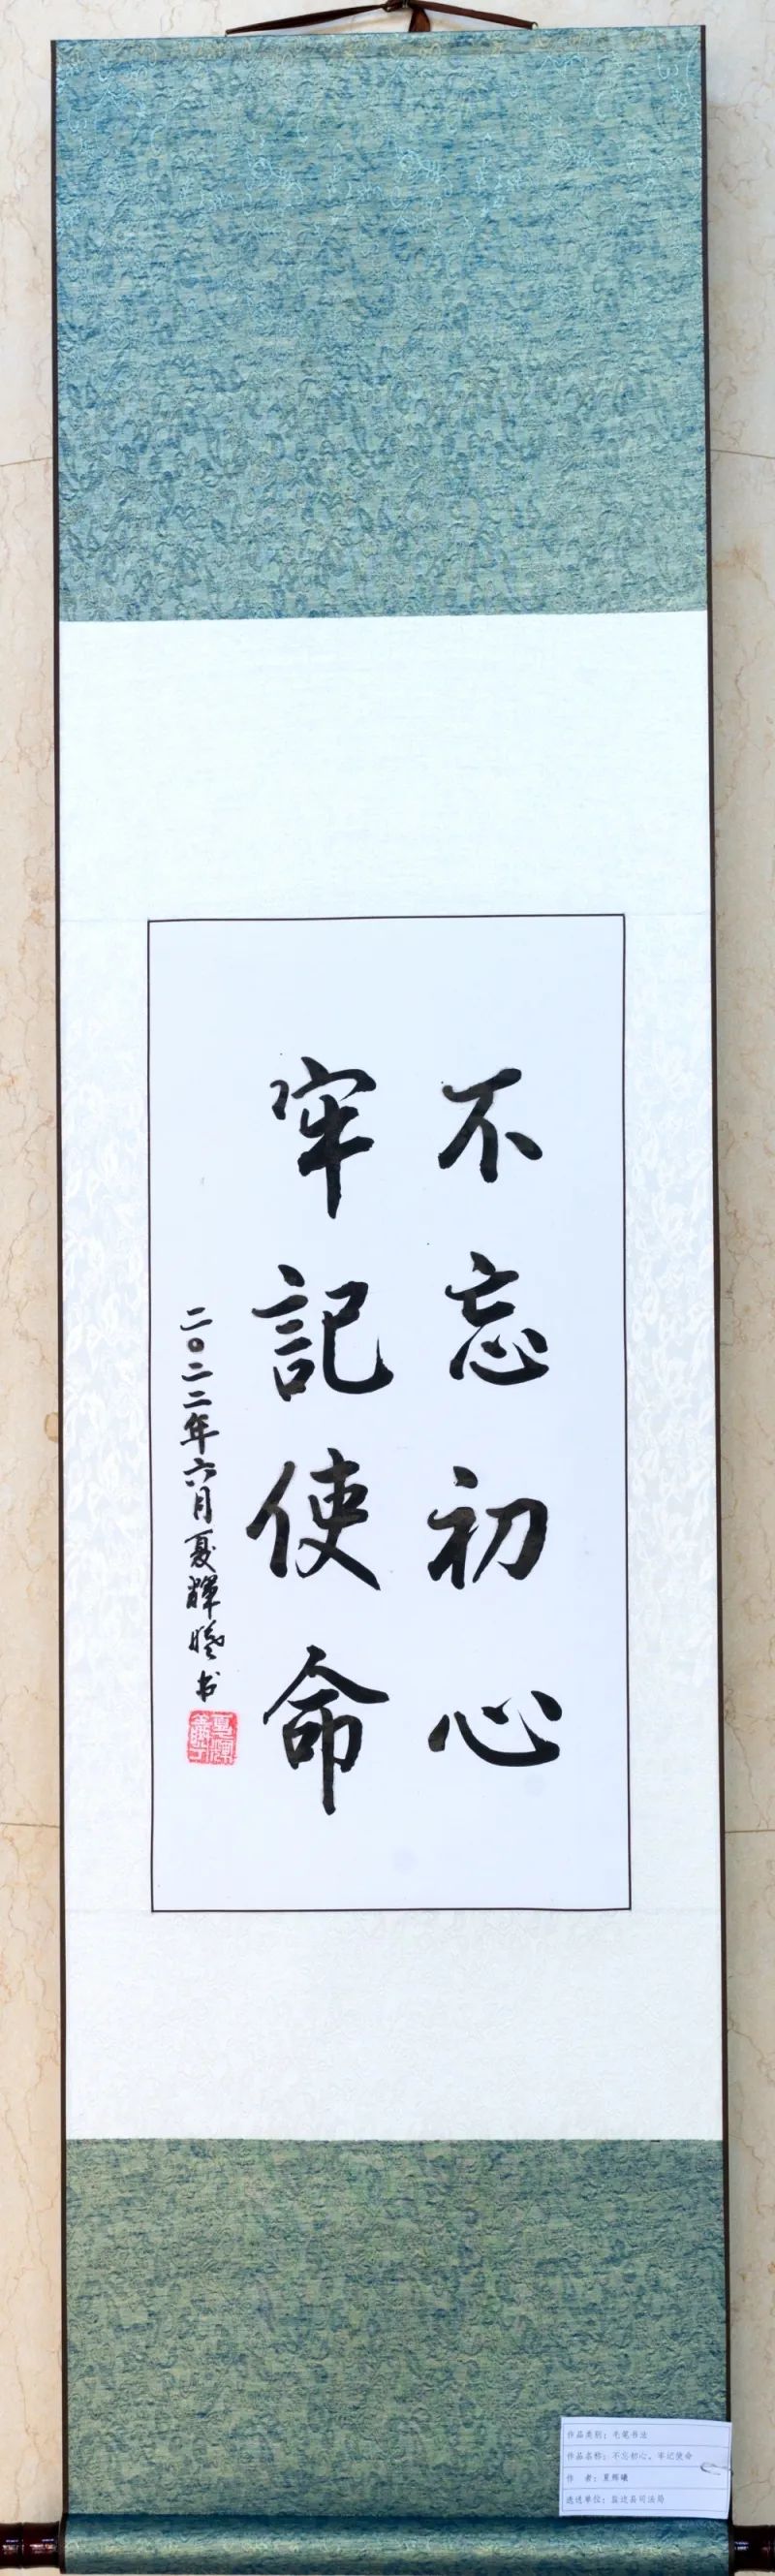 不忘初心
牢記使命
二〇二二年六月夏輝曦书
作品类别：毛笔书法
作品名称：不忘初心，牢记使命
作 者：夏辉曦
选送单位：盐边县司法局